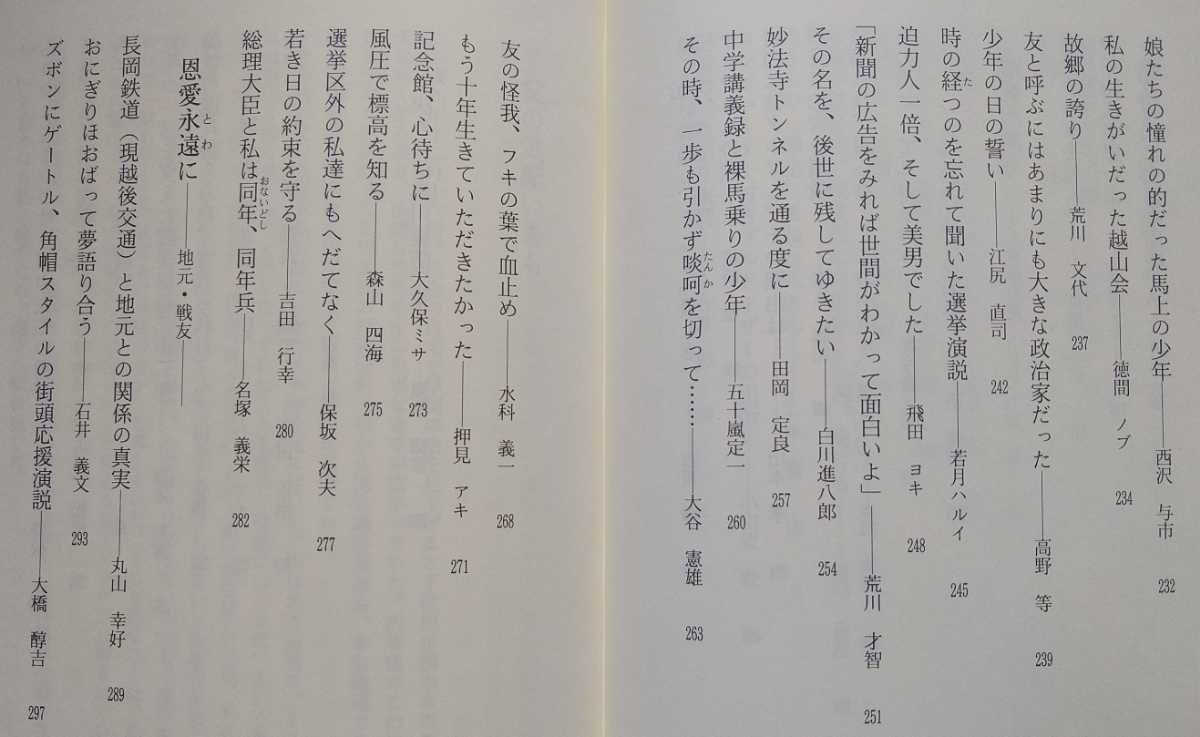 娘たちの憧れの的だった馬上の少年――西沢 与市 232
私の生きがいだった越山会――徳間 ノブ 234
故郷の誇り――荒川 文代 237
友と呼ぶにはあまりにも大きな政治家だった――高野 等 239
少年の日の誓い――江尻 直司 242
時の経つのを忘れて聞いた選挙演説――若月ハルイ 245
迫力人一倍、そして美男でした――飛田 ヨキ 248
「新聞の広告をみれば世間がわかって面白いよ」――荒川 才智 251
その名を、後世に残してゆきたい――白川進八郎 254
妙法寺トンネルを通る度に――田岡 定良 257
中学講義録と裸馬乗りの少年――五十嵐定一 260
その時、一歩も引かず啖呵を切って……――大谷 憲雄 263
友の怪我、フキの葉で血止め――水科 義一 268
もう十年生きていただきたかった――押見 アキ 271
記念館、心待ちに――大久保ミサ 273
風圧で標高を知る――森山 四海 275
選挙区外の私達にもへだてなく――保坂 次夫 277
若き日の約束を守る――吉田 行幸 280
総理大臣と私は同年、同年兵――名塚 義栄 282
恩愛永遠に――地元・戦友――
長岡鉄道(現越後交通)と地元との関係の真実――丸山 幸好 289
おにぎりほおばって夢語り合う――石井 義文 293
ズボンにゲートル、角帽スタイルの街頭応援演説――大橋 醇吉 297